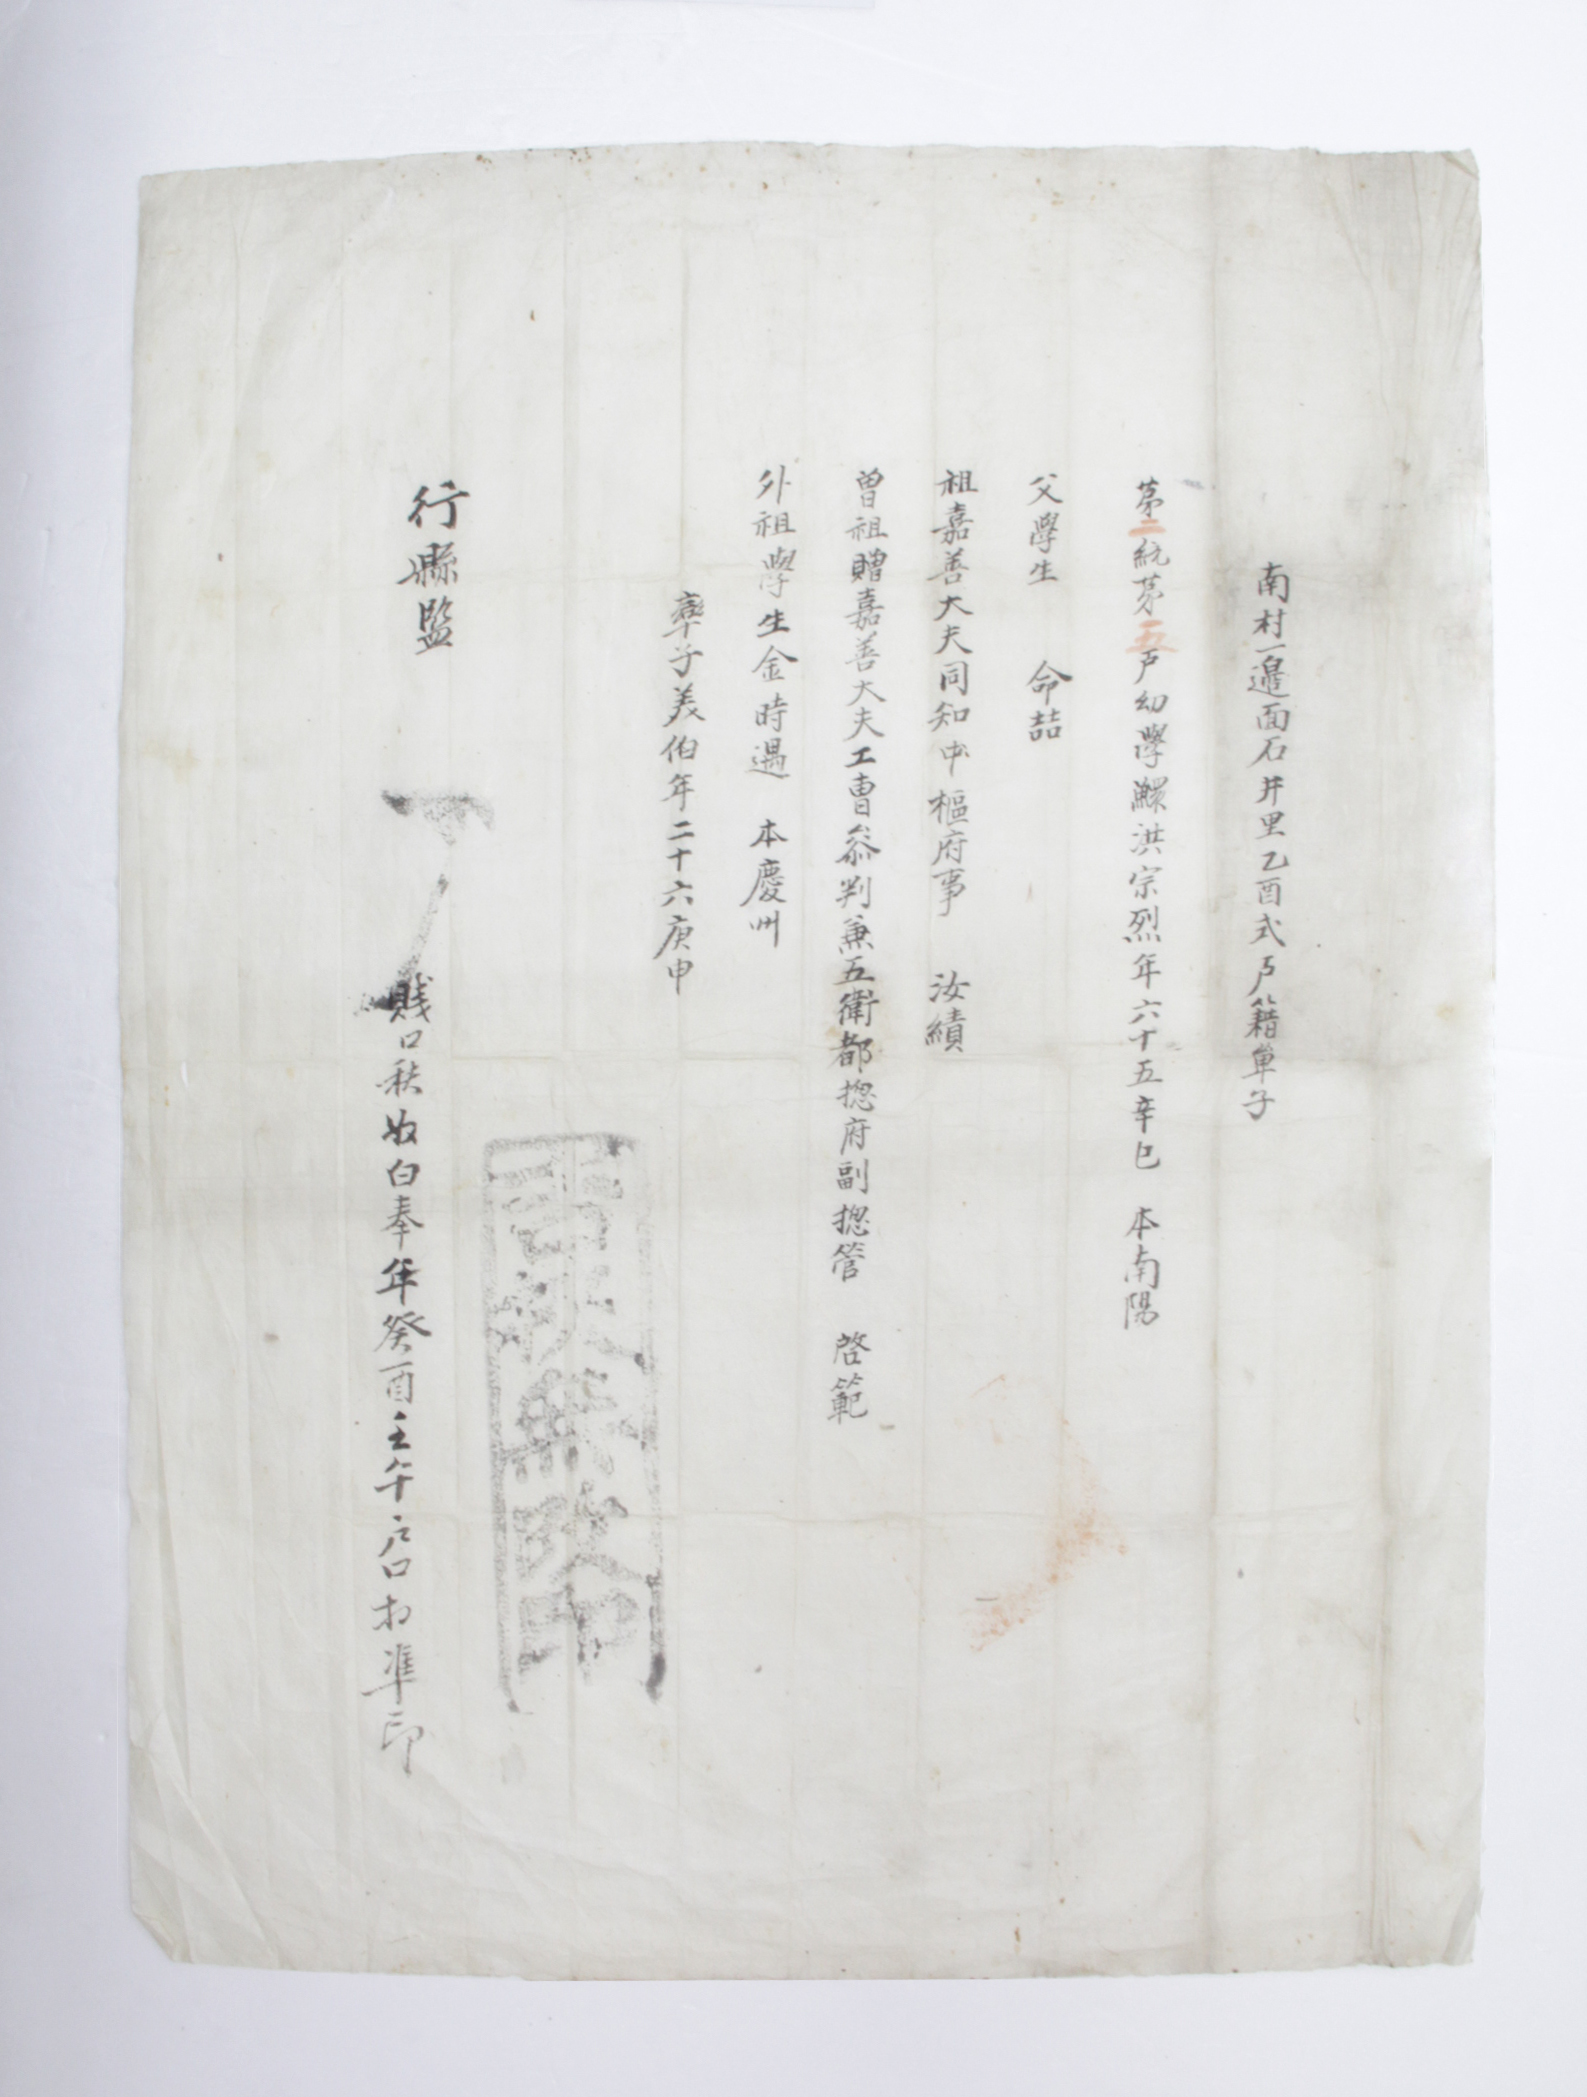 南村一邉面石井里乙酉式戶籍單子
第二統第五戶幼學鰥洪宗烈年六十五辛巳 本南陽
父學生 命喆
祖嘉善大夫同知中樞府事 汝績
曾祖贈嘉善大夫工曹叅判兼五衛都揔府副揔管 啓範
外祖學生金時遇 本慶州
率子義伯年二十六庚申
賤口秩奴白奉年癸酉壬午戶口相準印
行縣監